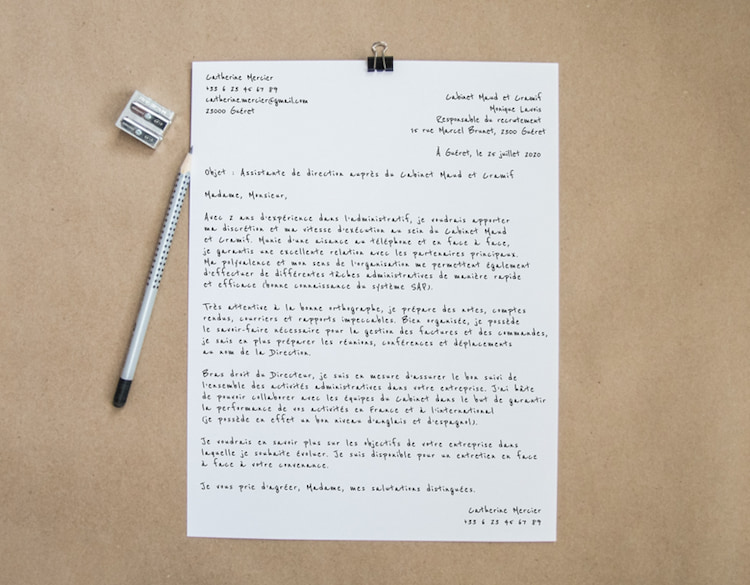 Catherine Mercier
+33 6 23 45 67 89
catherine.mercier@gmail.com
23000 Guéret
Cabinet Maud et Cramif
Monique Lavois
Responsable du recrutement
15 rue Marcel Brunet, 2300 Guéret
À Guéret, le 25 juillet 2020
Objet : Assistante de direction auprès du Cabinet Maud et Cramif
Madame, Monsieur,
Avec 2 ans d'expérience dans l'administratif, je voudrais apporter
ma discrétion et ma vitesse d'exécution au sein du Cabinet Maud
et Cramif. Munie d'une aisance au téléphone et en face à face,
je garantis une excellente relation avec les partenaires principaux.
Ma polyvalence et mon sens de l'organisation me permettent également
d'effectuer de différentes tâches administratives de manière rapide
et efficace (bonne connaissance du système SAP).
Très attentive à la bonne orthographe, je prépare des notes, comptes
rendus, courriers et rapports impeccables. Bien organisée, je possède
le savoir-faire nécessaire pour la gestion des factures et des commandes,
je sais en plus préparer les réunions, conférences et déplacements
au nom de la Direction.
Bras droit du Directeur, je suis en mesure d'assurer le bon suivi de
l'ensemble des activités administratives dans votre entreprise. J'ai hâte
de pouvoir collaborer avec les équipes du Cabinet dans le but de garantir
la performance de vos activités en France et à l'international
(je possède en effet un bon niveau d'anglais et d'espagnol).
Je voudrais en savoir plus sur les objectifs de votre entreprise dans
laquelle je souhaite évoluer. Je suis disponible pour un entretien en face
à face à votre convenance.
Je vous prie d'agréer, Madame, mes salutations distinguées.
Catherine Mercier
+33 6 23 45 67 89